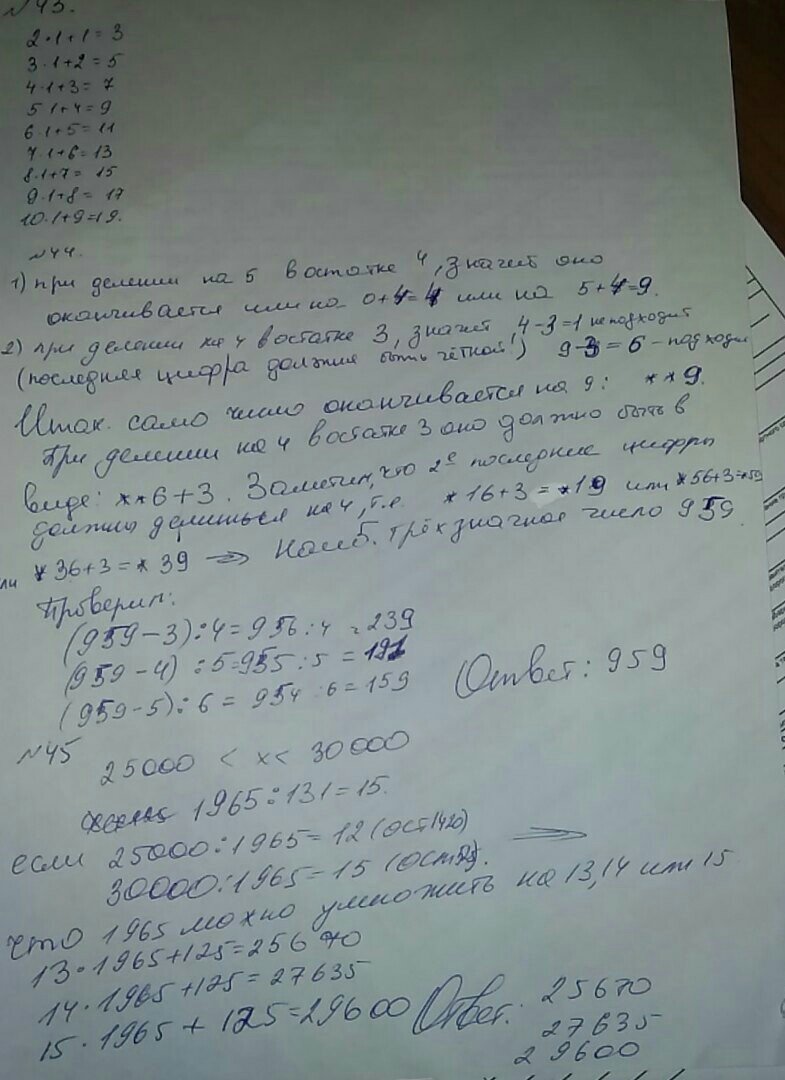 №43.
2·1+1=3
3·1+2=5
4·1+3=7
5·1+4=9
6·1+5=11
7·1+6=13
8·1+7=15
9·1+8=17
10·1+9=19.
№44.
1) при делении на 5 в остатке 4, значит оно
оканчивается или на 0+4=4 или на 5+4=9.
2) при делении на 4 в остатке 3, значит 4-3=1 не подходит
(последняя цифра должна быть чётной!) 9-3=6 - подходи
Итак. само число оканчивается на 9: **9.
При делении на 4 в остатке 3 оно должно быть в
виде: **6+3. Заметим, что 2е последние цифры
должны делиться на 4, т.е. *16+3=*19 или *56+3=*59
ли *36+3=*39 => Наиб. трёхзначное число 959
Проверим:
(959-3):4=956:4=239
(959-4):5=955:5=191
(959-5):6=954:6=159
Ответ: 959
№45
25000 < x < 30000
1965:131=15.
если 25000:1965=12 (ост 1420)
30000:1965=15 (ост ). =>
что 1965 можно умножить на 13,14 или 15
13·1965+125=25670
14·1965+125=27635
15·1965+125=29600
Ответ: 25670
27635
29600